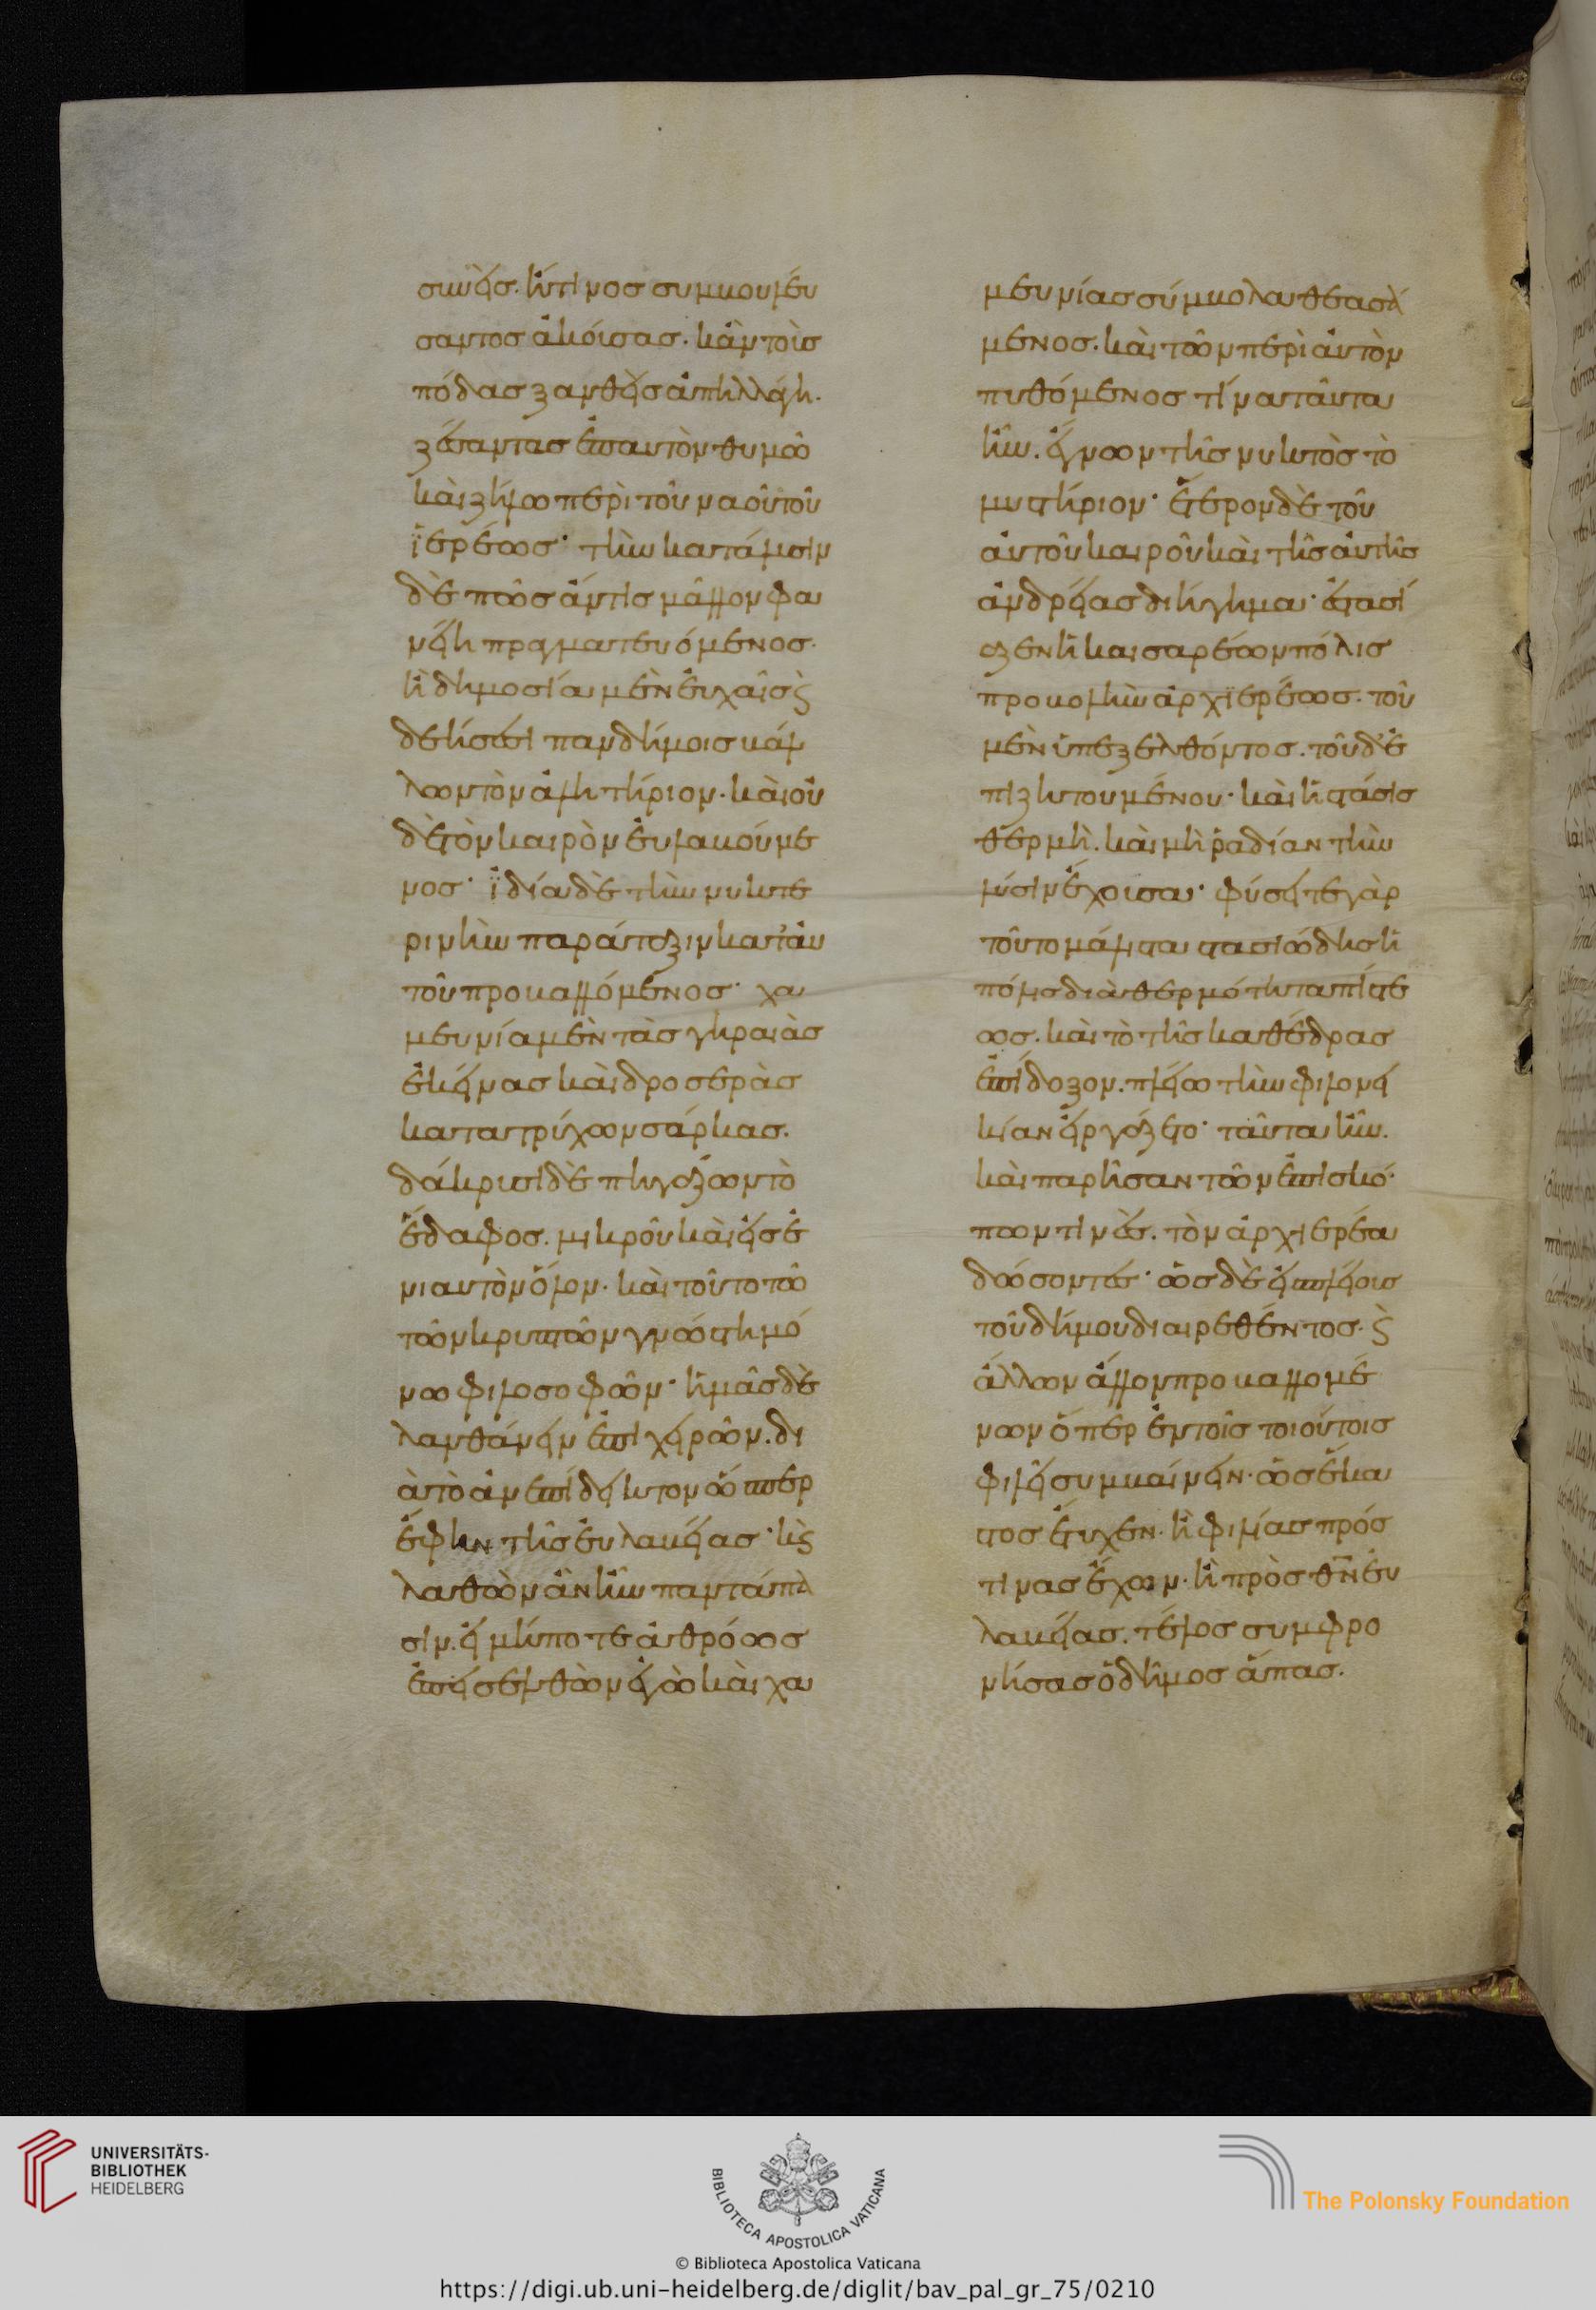 συνϊείς. ἤ τινος συμβουλεύ
σαντος ἀκούσας. κἂν τοὺς
πόδας ξανθεὶς ἀπηλλάγη.
ζέσαντας ἐπαυτὸν θυμῶ
καὶ ζήλω περὶ τοῦ ναοῦ τοῦ
ϊερέως· τὴν κατάλυσιν
δὲ πῶς ἄν τις μᾶλλον φα
νείη πραγματευόμενος·
ἢ δημοσία μὲν εὐχαῖς ϛ
δεήσεσι πανδήμοις βάλ
λων τὸν ἀλητήριον. καὶ οὐ
δὲ τὸν καιρὸν εὐλαβούμε
νος· ϊδία δὲ τὴν νυκτε
ρινὴν παράταξιν κατ' αὐ
τοῦ προβαλλόμενος· χα
μευνία μὲν τὰς γηραιὰς
ἐκείνας καὶ δροσερὰς
κατατρύχων σάρκας.
δάκρυσι δὲ πηγάζων τὸ
ἔδαφος. μικροῦ καὶ εἰς ἐ
νιαυτὸν ὅλον. καὶ τοῦτο τῶ
τῶν κρυπτῶν γνώστη μό
νω φιλοσοφῶν· ἡμᾶς δὲ
λανθάνειν ἐπιχειρῶν. δι
ὰ τὸ ἀνεπίδεικτον ὥσπερ
ἔφην τῆς εὐλαβείας· ἢ ϛ
λαθὼν ἂν ἦν παντάπα
σιν. εἰ μήποτε ἀθρόως
ἐπεισελθὼν ἐγὼ καὶ χα
μευνίας σύμβολα θεασά
μενος. καὶ τῶν περὶ αὐτὸν
πυθόμενος τίνα ταῦτα
ἦν. ἔγνων τῆς νυκτὸς τὸ
μυστήριον· ἕτερον δὲ τοῦ
αὐτοῦ καιροῦ καὶ τῆς αὐτῆς
ἀνδρείας διήγημα· ἐστασί
αζεν ἡ καισαρέων πόλις
προβολὴν ἀρχϊερέως. τοῦ
μὲν ὑπεξελθόντος. τοῦ δ' ἐ
πιζητουμένου· καὶ ἡ στάσις
θερμὴ. καὶ μὴ ῥαδίαν τὴν
λύσιν ἔχουσα· φύσει τε γὰρ
τοῦτο μάλιστα στασιώδης ἡ
πόλις διὰ θερμότητα πίστε
ως. καὶ τὸ τῆς καθέδρας
ἐπίδοξον. πλείω τὴν φιλονει
κίαν εἰργάζετο· ταῦτα ἦν.
καὶ παρῆσαν τῶν ἐπισκό
πων τινὲς. τὸν ἀρχιερέα
δώσοντες· ὡς δὲ εἰς πλείους
τοῦ δήμου διαιρεθέντος. ϛ
ἄλλων ἄλλον προβαλλομέ
νων ὅπερ ἐν τοῖς τοιούτοις
φιλεῖ συμβαίνειν. ὡς ἕκα
στος ἔτυχεν. ἢ φιλίας πρός
τινας ἔχων. ἢ πρὸς θν εὐ
λαβείας. τέλος συμφρο
νήσας ὁ δῆμος ἅπας.
UNIVERSITÄTS-
BIBLIOTHEK
HEIDELBERG
BIBLIOTECA APOSTOLICA VATICANA
The Polonsky Foundation
© Biblioteca Apostolica Vaticana
https://digi.ub.uni-heidelberg.de/diglit/bav_pal_gr_75/0210